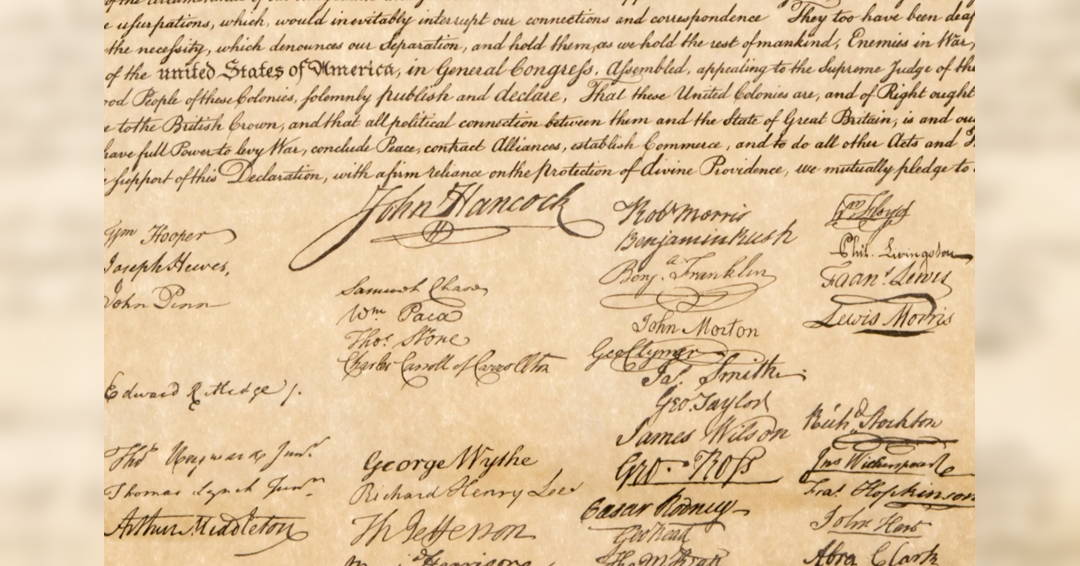 usurpations, which, would inevitably interrupt our connections and correspondence They too have been deaf
the necessity, which denounces our Separation, and hold them, as we hold the rest of mankind, Enemies in War,
of the united States of America, in General Congress, Assembled, appealing to the Supreme Judge of the
People of these Colonies, solemnly publish and declare, That these United Colonies are, and of Right ought
to the British Crown, and that all political connection between them and the State of Great Britain, is and
have full Power to levy War, conclude Peace, contract Alliances, establish Commerce, and to do all other Acts and
support of this Declaration, with a firm reliance on the Protection of divine Providence, we mutually pledge to
John Hancock
Wm Hooper
Joseph Hewes,
John Penn
Edward Rutledge /.
Thos Heyward Junr.
Thomas Lynch Junr.
Arthur Middleton
Samuel Chase
Wm Paca
Thos. Stone
Charles Carroll of Carrollton
George Wythe
Richard Henry Lee
Th Jefferson
Harrison
Robt Morris
Benjamin Rush
Benj. Franklin
John Morton
Geo Clymer
Jas. Smith
Geo. Taylor
James Wilson
Geo. Ross
Caesar Rodney
Geo Read
Tho M:Kean
Wm Floyd
Phil. Livingston
Frans. Lewis
Lewis Morris
Richd. Stockton
Jno Witherspoon
Fras. Hopkinson
John Hart
Abra Clark